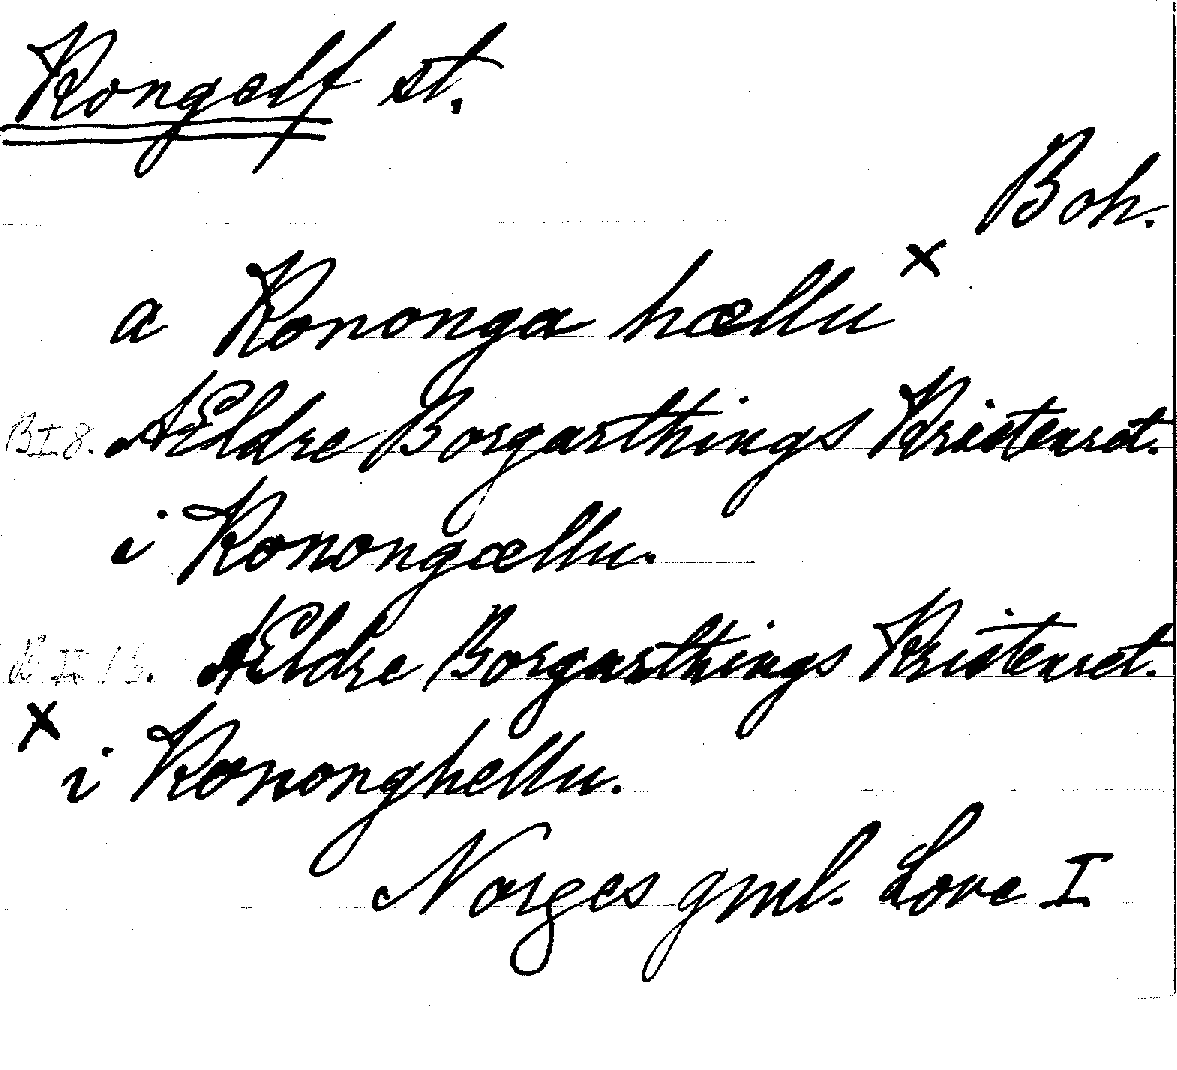 Kongelf st.
Boh.
a Kononga hællu x
BI 8. Ældre Borgarthings Kristenret.
i Konongællu.
B II 13. Ældre Borgarthings Kristenret.
x i Kononghellu.
Norges gml. Love I